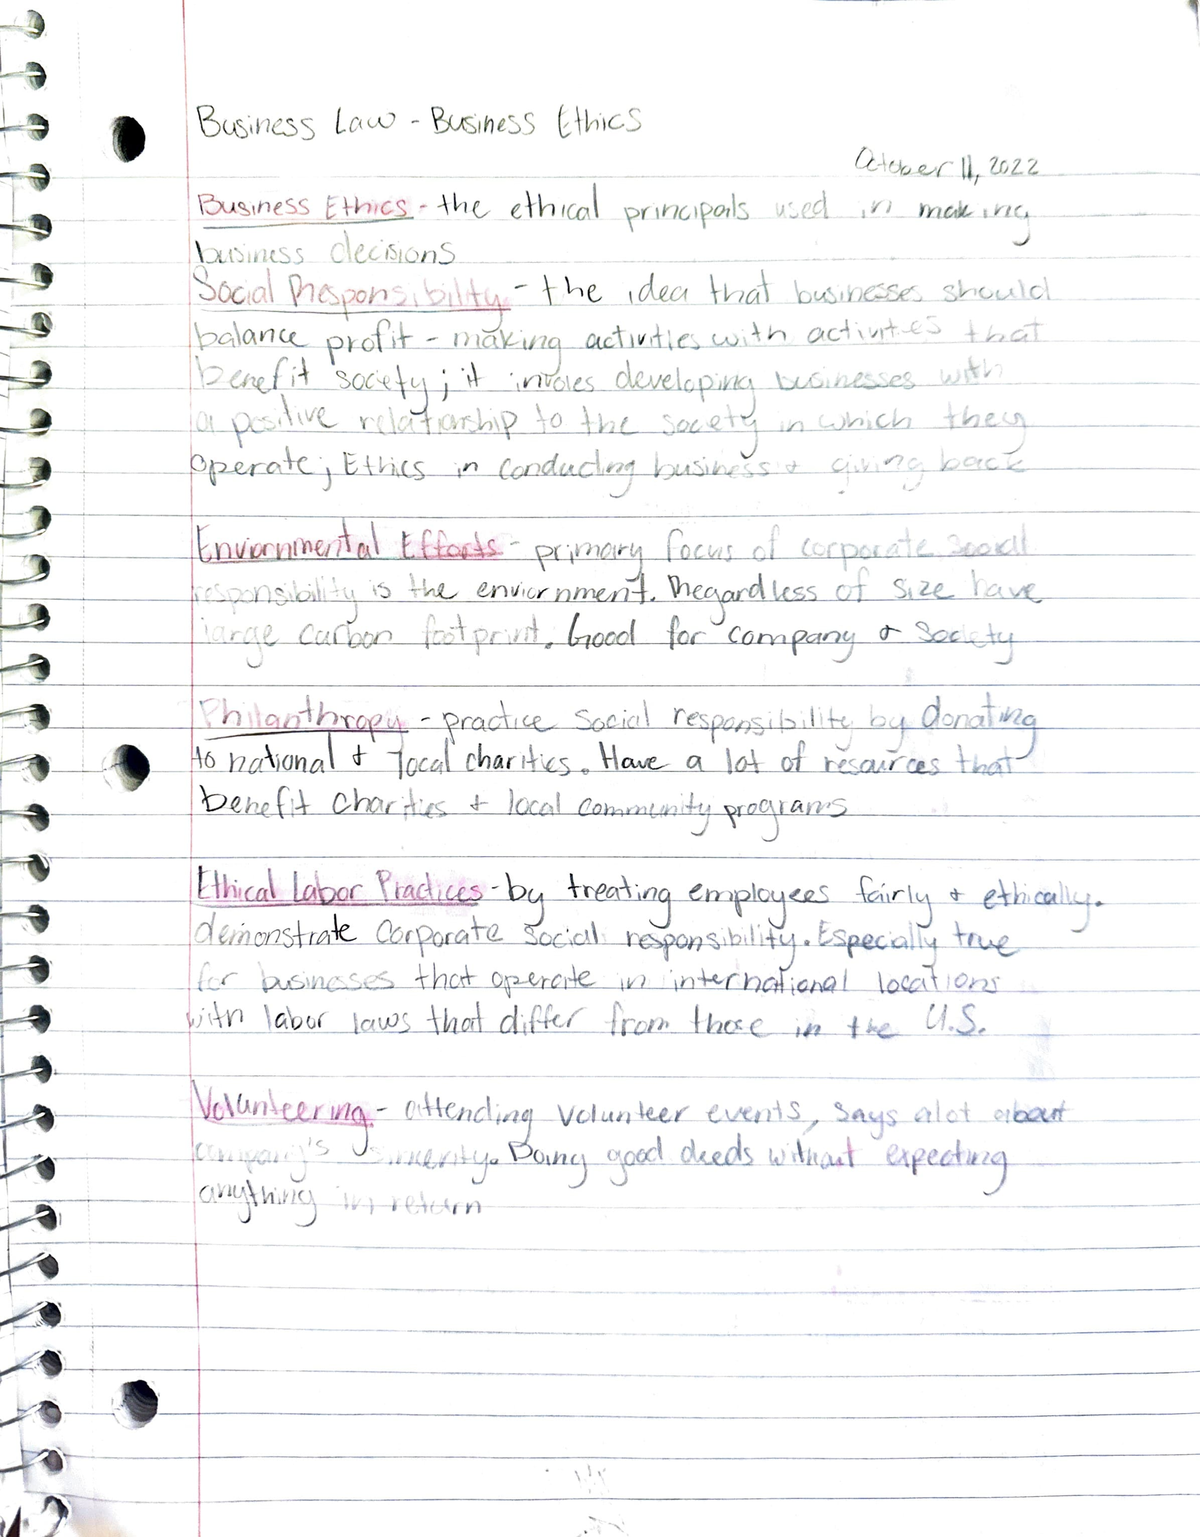 Business Law - Business Ethics
October 11, 2022
Business Ethics - the ethical principals used in making
business decisions
Social Responsibility - the idea that businesses should
balance profit - making activities with activities that
benefit society; it involes developing businesses with
a positive relationship to the society in which they
operate; Ethics in conducting business & giving back
Enviornmental Efforts - primary focus of corporate social
responsibility is the enviornment. Regardless of size have
large carbon footprint. Good for company & Society
Philanthropy - practice social responsibility by donating
to national & local charities. Have a lot of resources that
benefit charities & local community programs
Ethical Labor Practices - by treating employees fairly & ethically.
demonstrate corporate social responsibility. Especially true
for businesses that operate in international locations
with labor laws that differ from those in the U.S.
Volunteering - attending volunteer events, says alot about
company's sincerity. Doing good deeds without expecting
anything in return